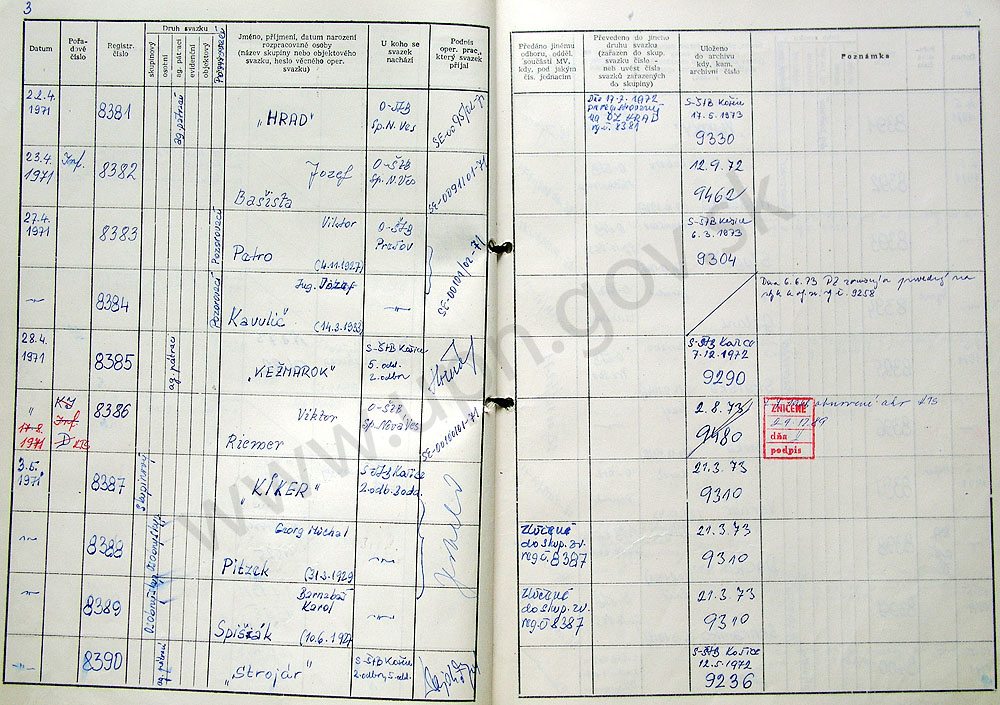 3
Datum
Pořadové číslo
Registr. číslo
Druh svazku
skupinový
osobní
ag. pátrací
evidenční
objektový
Pozorovací
Jméno, příjmení, datum narození
rozpracované osoby
(název skupiny nebo objektového
svazku, heslo věcného oper.
svazku)
U koho se
svazek
nachází
Podpis
oper. prac.,
který svazek
přijal
Předáno jinému
odboru, odděl.
součásti MV,
kdy, pod jakým
čís. jednacím
Převedeno do jiného
druhu svazku
(zařazen do skup.
svazku číslo -
neb uvést čísla
svazků zařazených
do skupiny)
Uloženo
do archivu
kdy, kam,
archivní číslo
Poznámka
22.4.
1971
8381
ag. pátrací
"HRAD"
O-ŠtB
Sp.N.Ves
17.7.1972
8381
S-ŠtB Košice
17.5.1973
9330
23.4.
1971
Inf.
8382
Jozef
Bašista
O-ŠtB
Sp.N.Ves
12.9.72
9462
27.4.
1971
8383
Pozorovací
Viktor
Patro
(4.11.1927)
O-ŠtB
Prešov
S-ŠtB Košice
6.3.1973
9304
8384
Pozorovací
Ing. Jozef
Kavulič
(14.3.1933)
Dňa 6.6.73 PZ
9258
28.4.
1971
8385
ag. pátrací
"KEŽMAROK"
S-ŠtB Košice
5. odd.
2. odbor
S-ŠtB Košice
7.12.1972
9290
"
17.8.
1971
KTS
8386
Viktor
Riemer
O-ŠtB
Sp.Nová Ves
2.8.73
9480
ZNIČENÉ
dňa
podpis
3.5.
1971
8387
Skupinový
"KÍKER"
S-ŠtB Košice
2.odb.3odd.
21.3.73
9310
8388
Georg Michal
Pitzek
(31.3.1929)
Zlúčené
do skup. zv.
reg.č 8387
21.3.73
9310
8389
Barnabáš
Karol
Spišzák
(10.6.1927)
Zlúčené
do skup. zv.
reg.č 8387
21.3.73
9310
8390
ag. pátrací
"Strojár"
S-ŠtB Košice
2.odbor, 5.odd.
S-ŠtB Košice
12.5.1972
9236
www.upn.gov.sk